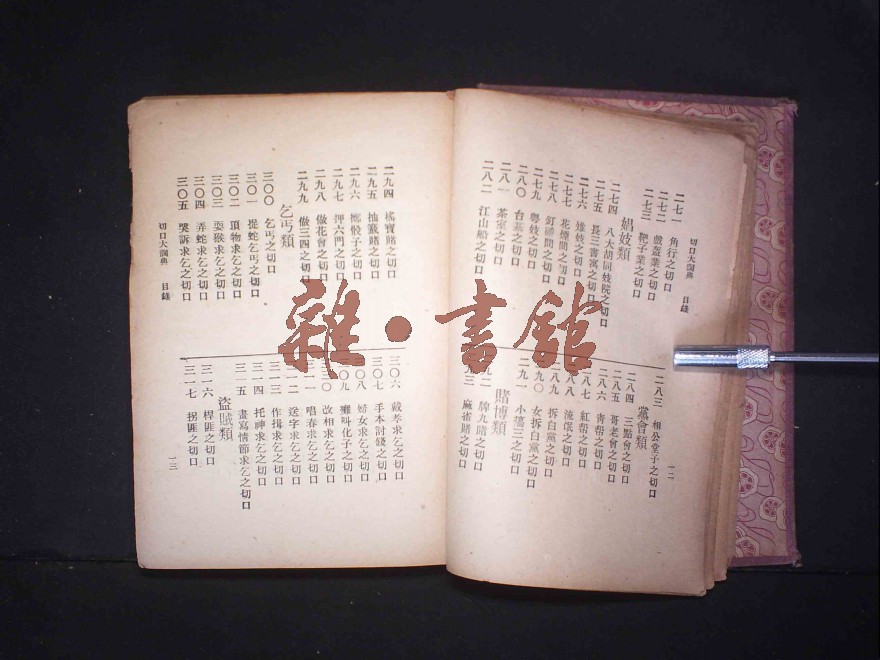 切口大詞典　目錄
二七一　角行之切口
二七二　戲盔業之切口
二七三　靶子業之切口
娼妓類
二七四　八大胡同妓院之切口
二七五　長三書寓之切口
二七六　雉妓之切口
二七七　花煙間之切口
二七八　釘棚間之切口
二七九　粵妓之切口
二八〇　台基之切口
二八一　茶室之切口
二八二　江山船之切口
二八三　相公堂子之切口
黨會類
二八四　三點會之切口
二八五　哥老會之切口
二八六　青幫之切口
八七　紅幫之切口
八八　流氓之切口
二八九　拆白黨之切口
二九〇　女拆白黨之切口
二九一　小瘪三之切口
賭博類
九二　牌九賭之切口
九三　麻雀賭之切口
一二
二九四　搖寶賭之切口
二九五　抽籤賭之切口
二九六　擲骰子之切口
二九七　押六門之切口
二九八　做花會之切口
二九九　做三四之切口
乞丐類
三〇〇　乞丐之切口
三〇一　捉蛇乞丐之切口
三〇二　頂物求乞之切口
三〇三　耍猴求乞之切口
三〇四　弄蛇求乞之切口
三〇五　哭訴求乞之切口
切口大詞典　目錄
三〇六　戴孝求乞之切口
三〇七　手本討錢之切口
〇八　婦女求乞之切口
〇九　叫化子之切口
一〇　改相求乞之切口
三一一　唱春求乞之切口
三一二　送字求乞之切口
三一三　作揖求乞之切口
三一四　托神求乞之切口
三一五　畫寫情節求乞之切口
盜賊類
三一六　桿匪之切口
三一七　拐匪之切口
一三
雜·書館